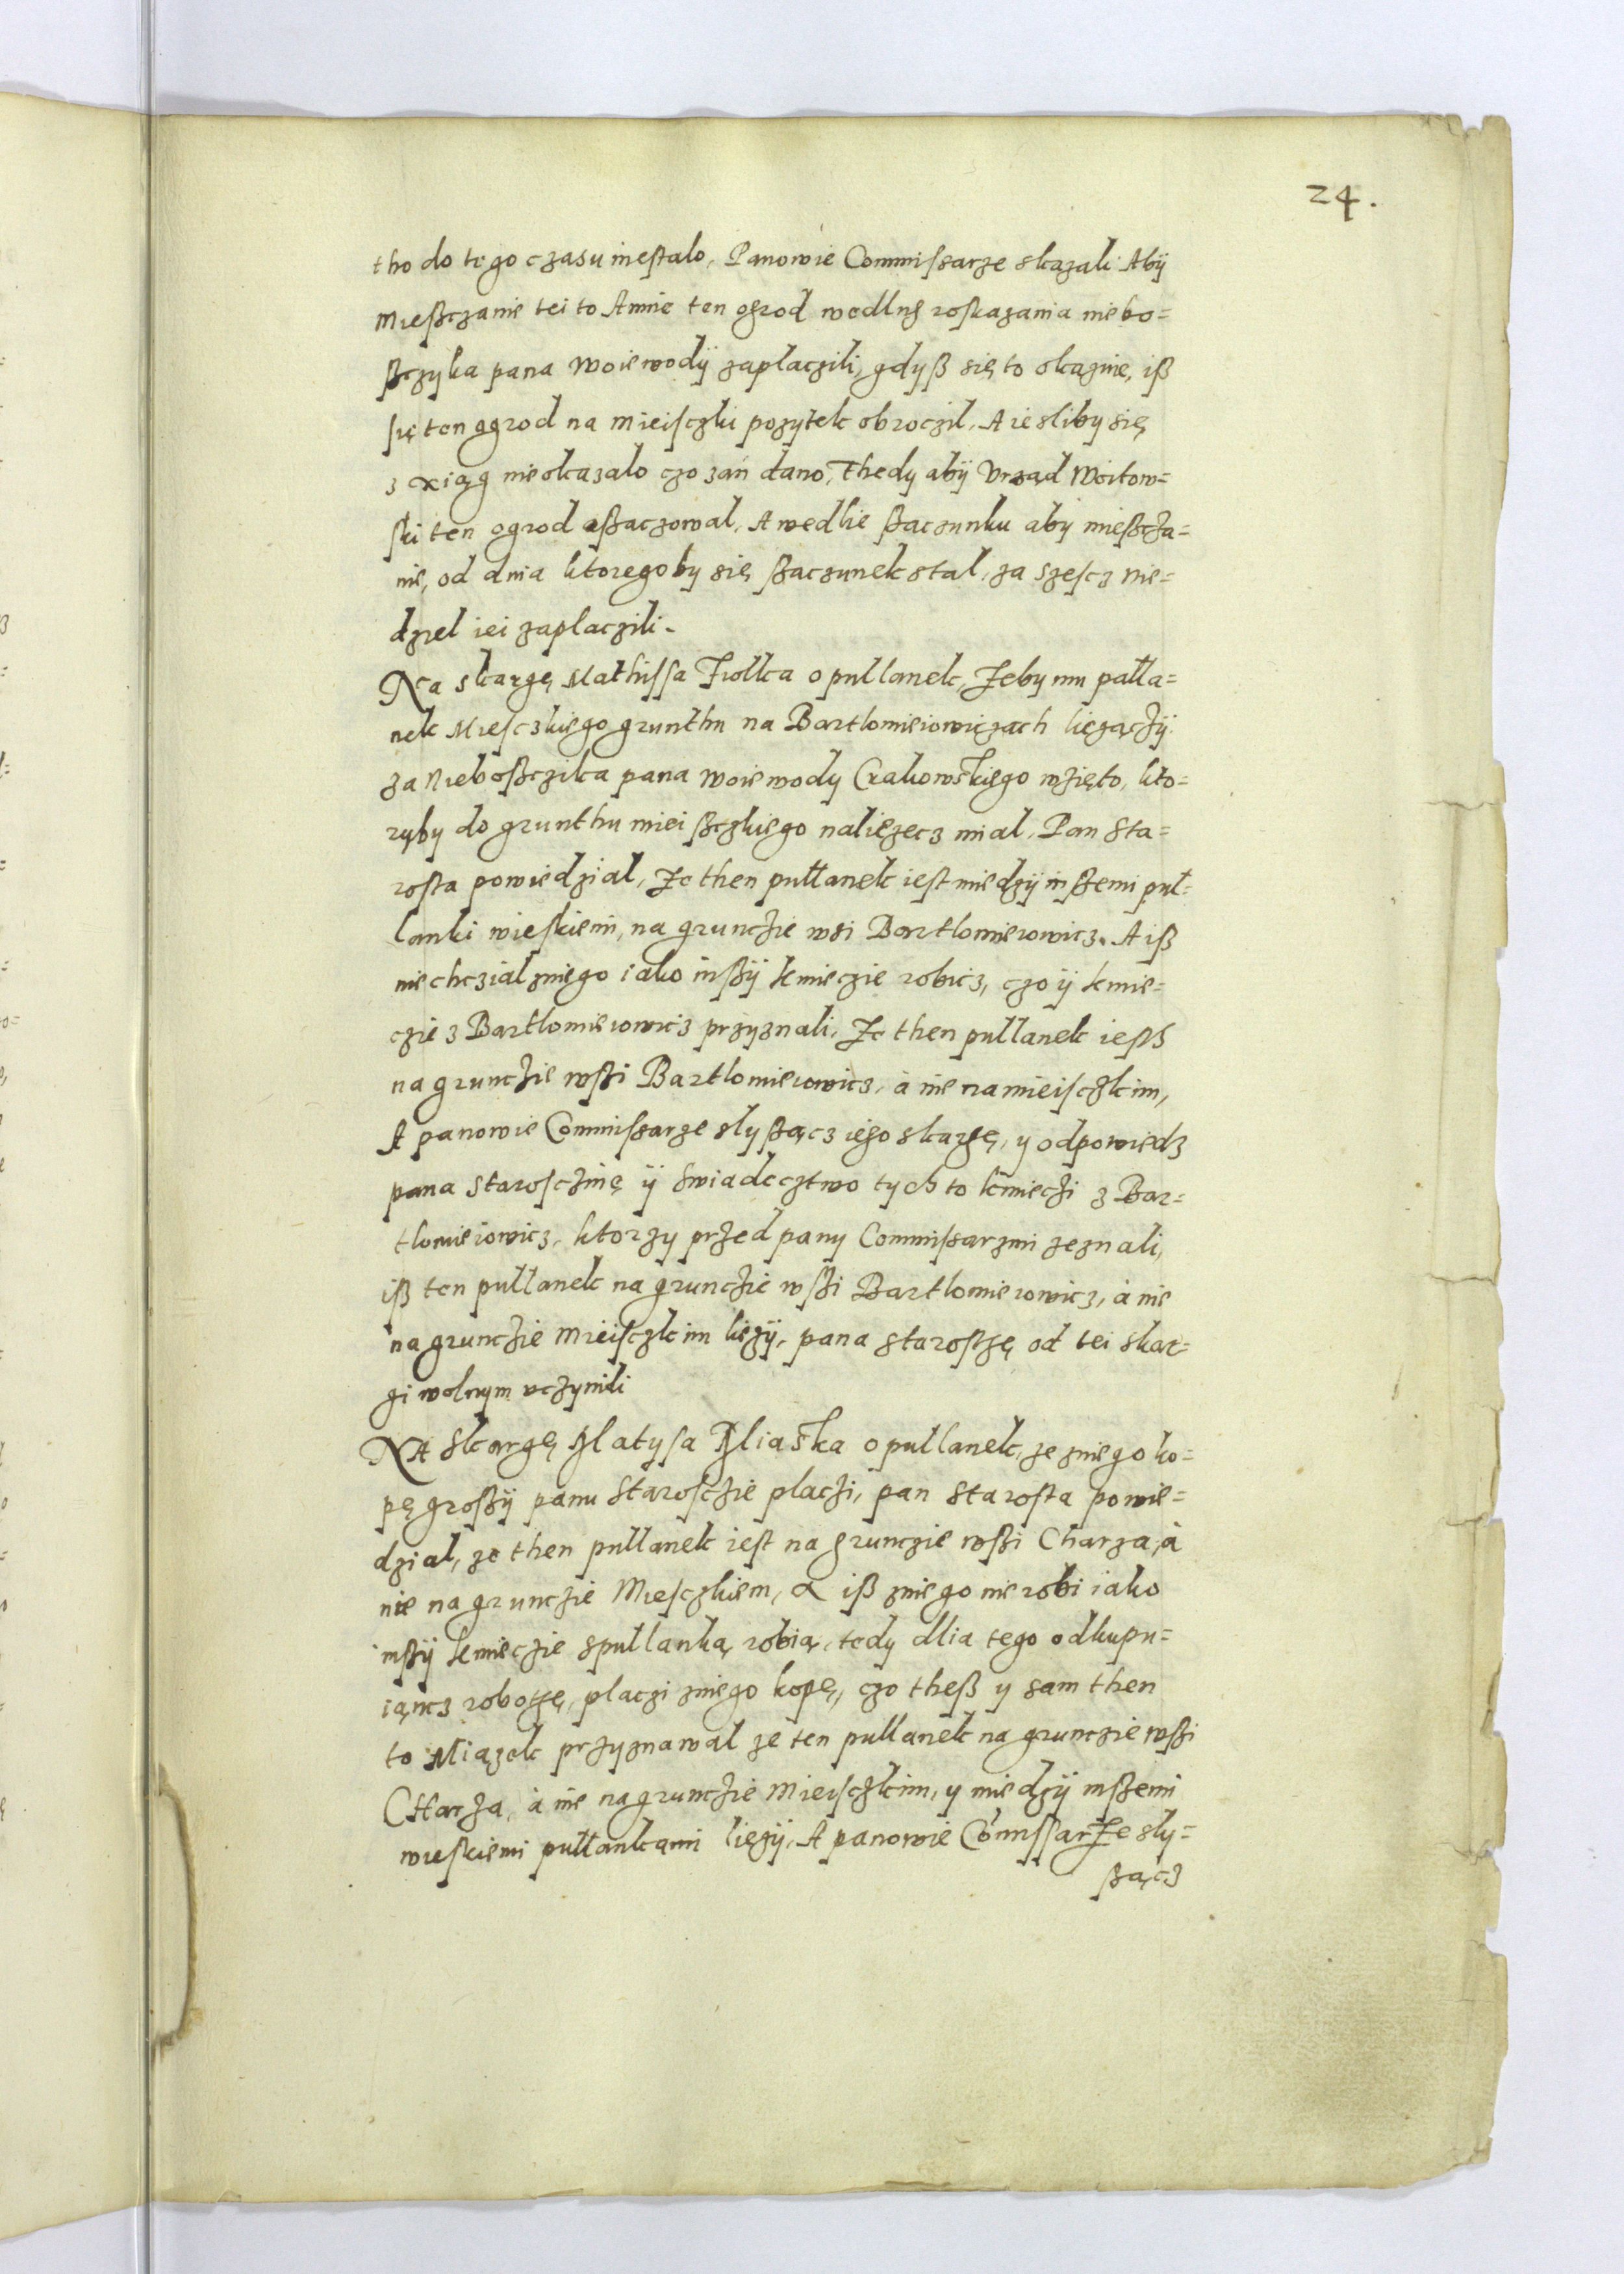 24.
tho do tego czasu niestalo, Panowie Commissarze skazali Abÿ
Miesczanie tei to Annie ten ogrod wedlug roskazania niebo=
sczyka pana Woiewodÿ zaplaczili, gdyß się to okaznie, iß
się ten ogrod na Mieisczki pozytek obroczil, A iesliby się
z xiąg nieokazalo czo zań dano, Thedy abÿ Vrząd Woitow=
ski ten ogrod oßaczowal, A wedlie ßaczunku aby mießcza=
nie, od dnia ktoregoby się ßaczunek stal, za szescz nie=
dziel iei zaplaczili.
Na skargę Mathissa Fiolka o pullanek, Zeby mu pulla=
nek Miesczkiego grunthu na Bartlomieiowiczach liezączÿ
za Niebosczika pana Woiewody Crakowskiego wzięto, kto=
ryby do grunthu mieisczkiego naliezecz mial, Pan Sta=
rosta powiedzial, Ze then pullanek iest miedzÿ inßemi pul=
lanki wieskiemi, na grunczie wsi Bartlomieiowicz. A iß
niechczial zniego iako inßÿ kmieczie robicz, czo ÿ kmie=
czie z Bartlomieiowicz przyznali, Ze then pullanek iesth
na grunczie wßi Bartlomieiowicz, a nie na mieisczkim,
A panowie Commissarze slyßącz iego skargę, y odpowiedz
pana Starosczinę ÿ swiadecztwo tych to kmieczi z Bar=
tlomieiowicz, ktorzy przed pany Commissarzmi zeznali,
iß ten pullanek na grunczie wßi Bartlomieiowicz, a nie
na grunczie Mieisczkim liezÿ, pana Starostzę od tei skar=
gi wolnym vczynili
NA Skargę Matysa Miaska o pullanek, ze zniego ko=
pę großÿ panu Starosczie placzi, pan Starosta powie=
dzial, ze then pullanek iest na grunczie wßi Charza, a
nie na grunczie Miesczkiem, A iß zniego nie robi iako
inßÿ kmieczie spullanką robią, tedy dlia tego odkupu=
iąncz robotzę, placzi zniego kopę, czo theß y sam then
to Miązek przyznawal ze ten pullanek na grunczie wßi
CHarza, a nie na grunczie Mieisczkim, y miedzÿ inßemi
wieskiemi pullankami liezÿ, A panowie Comissarze sly=
ßącz